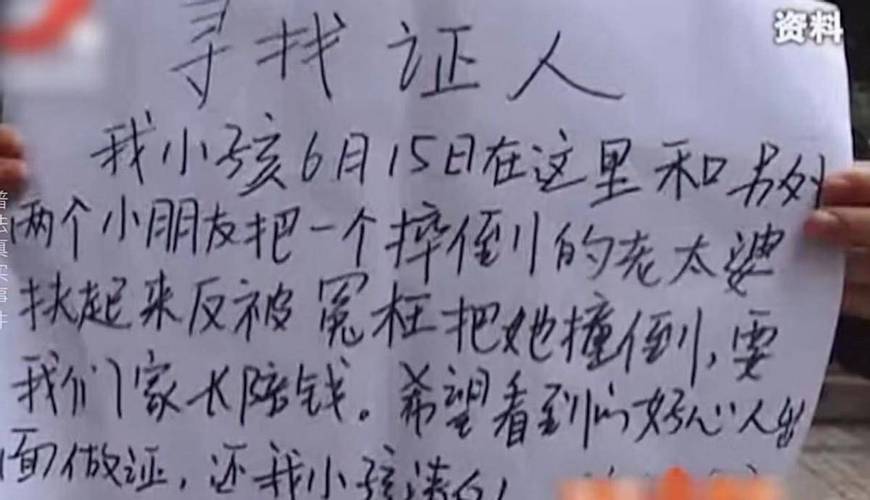 资料
寻找证人
我小孩6月15日在这里和另外
两个小朋友把一个摔倒的老太婆
扶起来反被冤枉把她撞倒,要
我们家长陪钱。希望看到的好心人出
面做证,还我小孩清白
普法真实事件